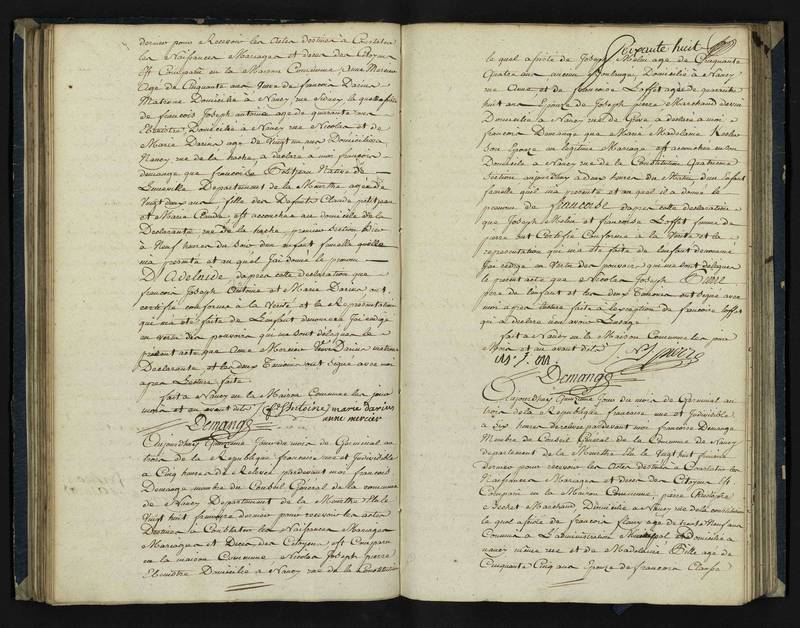 dernier pour Recevoir les Actes destinés à Constater
les Naissances Mariages et deces des Citoyens
Est Comparu en la Maison Commune Anne Mercier
Age de Cinquante ans Veve de francois Darius
Matrone Domiciliée à Nancy rue
de francois Joseph antoine age de quarante ans
Domiciliée à Nancy rue Nicolas et de
Marie Darius age de Vingt un ans Domiciliée à
Nancy rue de la hache, a declaré a moi françois
demange que francoise Petitjean Native de
Luneville Departement de la Meurthe agée de
Vingt deux ans fille des Defunts Claude petitjean
et Marie Claude est accouchée au domicile de la
Declarante rue de la hache premiere section hier
à Neuf heures du Soir d'un enfant femelle qu'elle
m'a presenté et au quel J'ai donné le prenom
D'Adelaide d'apres cette declaration que
francois Joseph Antoine et Marie Darius ont
certifié conforme à la Verité et la Representation
qui m'a eté faite de L'enfant denommé J'ai rédigé
en vertu des pouvoirs qui me sont délégués le
présent acte que Anne Mercier Veve Darius matrone
Declarante et les deux Temoins ont Signé avec moi
apres Lecture faite
fait à Nancy en la Maison Commune les jour
mois et an avant dits antoine marie darius
Demange anne mercier
Aujourdhuy Quinzieme Jour du mois de Germinal an
trois de la Republique francoise une et Indivisible
à Cinq heures de Relevée pardevant moi francois
Demange membre du Conseil Général de la commune
de Nancy Departement de la Meurthe élu le
Vingt huit frimaire dernier pour recevoir les actes
Destinés à Constater les Naissances Mariages
et Deces des Citoyens est Comparu
en la maison Commune Nicolas Joseph pierre
Ebeniste Domicilié à Nancy rue de la Constitution
Soixante huit
le quel assisté de Joseph Molin age de Cinquante
quatre ans ancien Boulanger Domicilié à Nancy
rue et de francoise Loffet agée de quarente
huit ans Epouse de Joseph pierre Marchand
Domiciliée à Nancy rue de Grève a declaré à moi
francois Demange que Marie Madelaine
Son Epouse en legitime Mariage est accouchée en son
Domicile à Nancy rue de la Constitution Quatrieme
Section aujourdhuy à deux heures du Matin, d'un Enfant
femelle qu'il m'a presenté et au quel il a donné le
prenom de francoise d'apres cette declaration
que Joseph Molin et francoise Loffet femme de
pierre ont Certifié Conforme à la Verité et la
representation qui m'a eté faite de l'enfant denommé
J'ai rédigé en Vertu des pouvoirs qui me sont délégués
le présent acte que Nicolas Joseph pierre
pere de l'enfant et les deux Temoins ont signé avec
moi apres lecture faite à l'exception de francoise Loffet
qui a declaré n'en avoir L'usage
fait à Nancy en la Maison Commune les jour
Mois et an avant dits
Demange
Aujourdhuy Quinzieme Jour du mois de Germinal an
trois de la Republique francoise une et Indivisible
à dix heures pardevant moi francois Demange
Membre du Conseil Général de la Commune de Nancy
departement de la Meurthe élu le Vingt huit frimaire
dernier pour recevoir les Actes destinés à Constater les
Naissances Mariages et deces des Citoyens Est
Comparu en la Maison Commune, pierre
Marchand Domicilié a Nancy rue de la Constitution
le quel assisté de francois fleury age de trente Neuf ans
Commis à L'administration Municipal et Domicilié a
nancy même rue et de Madelaine age de
Cinquante Cinq ans Epouse de francois